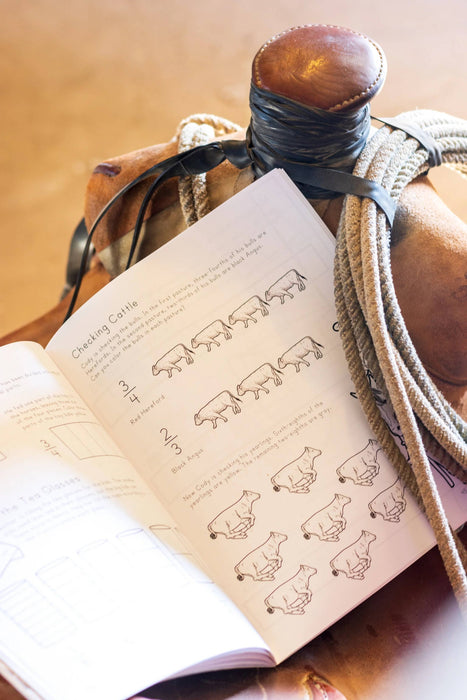 been broken
He fed one part of
of the four pieces. Color the
3/4
the Tea Glasses
Checking Cattle
Cody is checking the bulls. In the first pasture, three fourths of his bulls are
Herefords. In the second pasture, two thirds of his bulls are black Angus.
Can you color the bulls in each pasture?
3/4
Red Hereford
2/3
Black Angus
Now Cody is checking his yearlings. Sixth-eighths of the
yearlings are yellow. The remaining two-eighths are gray.